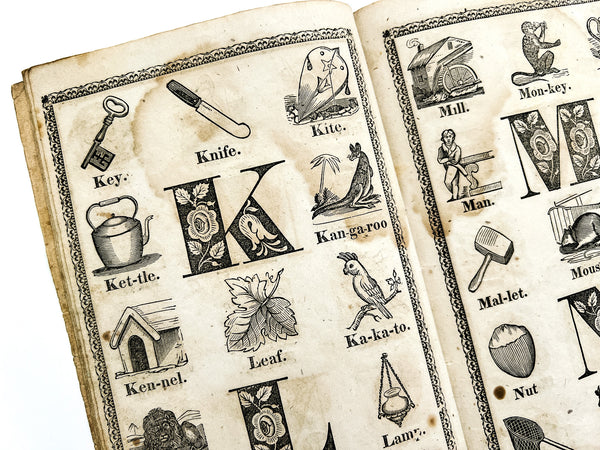 Key.
Knife.
Kite.
K
Ket-tle.
Kan-ga-roo
Ken-nel.
Leaf.
Ka-ka-to.
L
Lamp.
Mill.
Mon-key.
M
Man.
Mal-let.
Mous
Nut